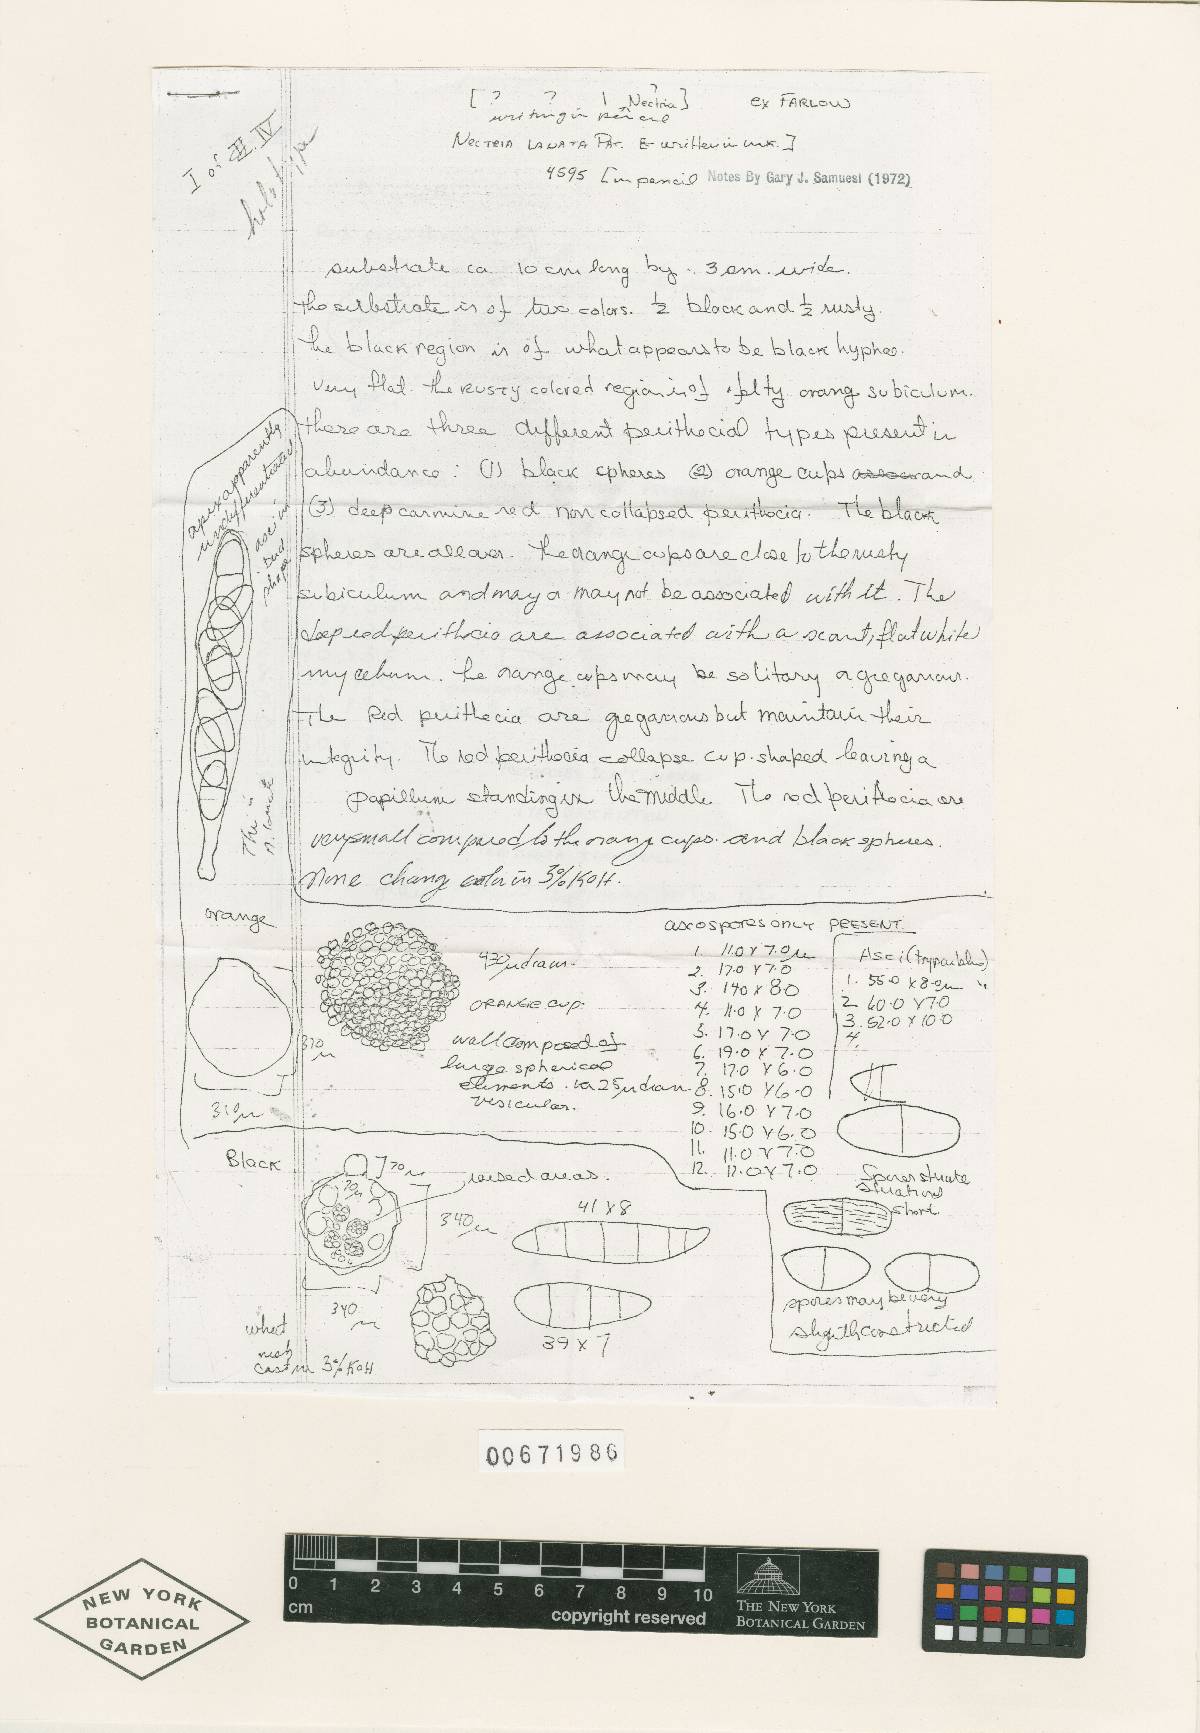 [ ? ? | Nectria ? ] ex FARLOW
writing in pencil
NECTRIA LANATA PAT. E- written in ink.]
4595 [in pencil Notes By Gary J. Samuesl (1972)
I of IV
holotype
substrate ca 10 cm long by . 3 cm. wide.
the substrate is of two colors. ½ black and ½ rusty.
The black region is of what appears to be black hyphae.
Very flat. the rusty colored region is of felty orang subiculum.
there are three different perithecial types present in
abundance : (1) black spheres (2) orange cups and
(3) deep carmine red non collapsed perithecia. The black
spheres are all over. The orange cups are close to the rusty
subiculum and may or may not be associated with it. The
deep red perithecia are associated with a scant, flat white
mycelium. The orange cups may be solitary or gregarious.
The Red perithecia are gregarious but maintain their
integrity. The red perithecia collapse cup-shaped leaving a
papillum standing in the middle. The red perithecia are
very small compared to the orange cups and black spheres.
None change color in 3% KOH.
apex apparently
undifferentiated
asci in
bud
shape
This is
N. lanat
orange
370 µ
310 µ
µ diam.
ORANGE CUP.
wall composed of
large spherical
elements. ca 25 µ diam.
vesicular.
ascospores only PRESENT
1. 11.0 x 7.0 µ
2. 17.0 x 7.0
3. 14.0 x 8.0
4. 11.0 x 7.0
5. 17.0 x 7.0
6. 19.0 x 7.0
7. 17.0 x 6.0
8. 15.0 x 6.0
9. 16.0 x 7.0
10. 15.0 x 6.0
11. 11.0 x 7.0
12. 12.0 x 7.0
Asci (trypan blue)
1. 55.0 x 8.0 µ
2. 60.0 x 7.0
3. 52.0 x 10.0
4.
Spores striate
striations
short
spores may be very
slightly constricted
Black
70 µ
70 µ
raised areas.
340 µ
340 µ
41 x 8
39 x 7
3% KOH
00671986
0 1 2 3 4 5 6 7 8 9 10
cm
copyright reserved
THE NEW YORK
BOTANICAL GARDEN
NEW YORK
BOTANICAL
GARDEN